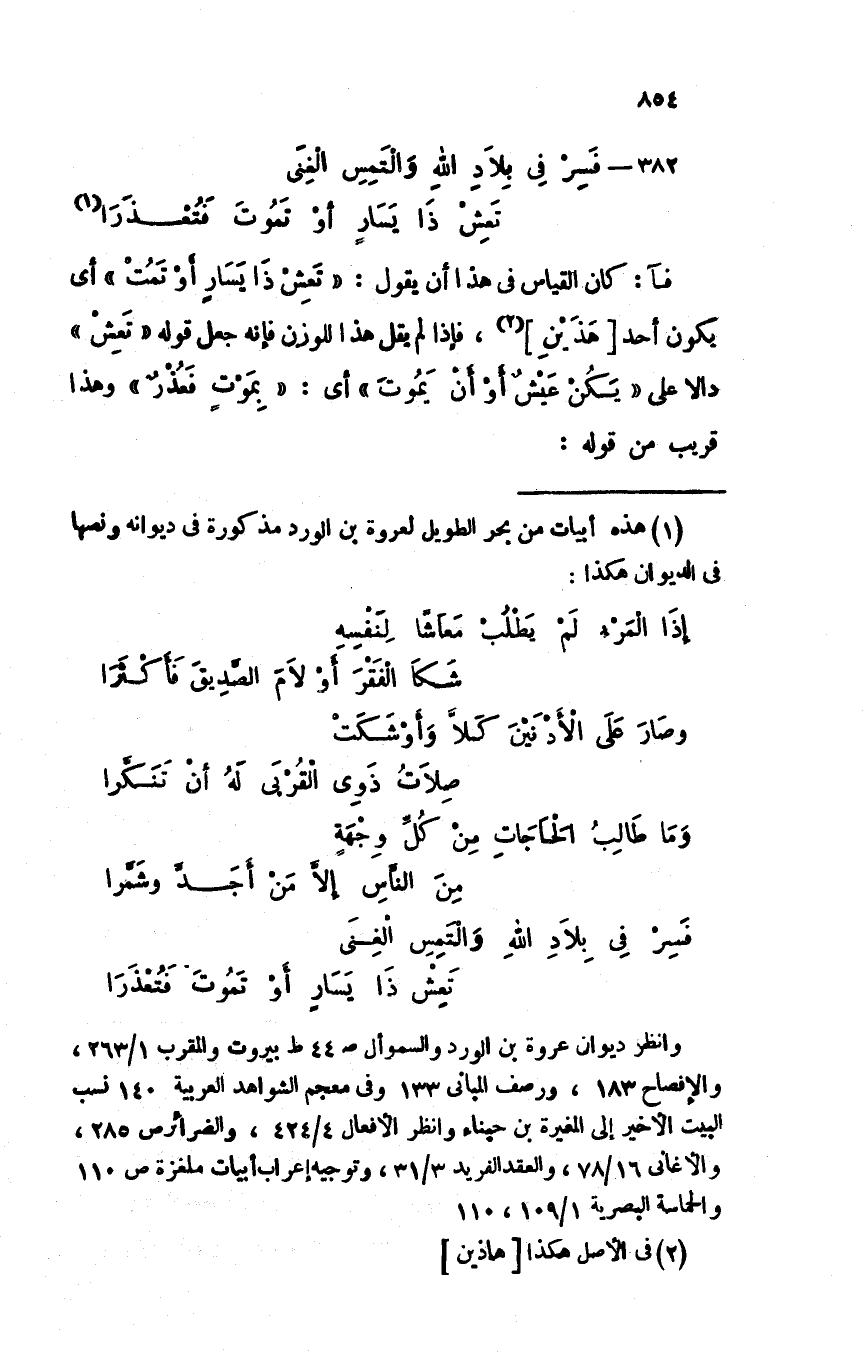 ٨٥٤
٣٨٢ – فَسِرْ فِى بِلاَدِ اللهِ وَالْتَمِسِ الْغِنَى
تَعِشْ ذَا يَسَارٍ أوْ تَمُوتَ فَتُعْــذَرَا(١)
فآ : كان القياس فى هذا أن يقول : « تَعِشْ ذَا يَسَارٍ أَوْ تَمُتْ » أى
يكون أحد [ هَذَيْنِ ](٢) ، فإذا لم يقل هذا للوزن فإنه جعل قوله « تَعِشْ »
دالا على « يَـكُنْ عَيْشٌ أَوْ أَنْ يَمُوتَ » أى : « بِمَوْتٍ فَعُذْرٌ » وهذا
قريب من قوله :
(١) هذه أبيات من بحر الطويل لعروة بن الورد مذكورة فى ديوانه ونصها
فى الديوان هكذا :
إِذَا الْمَرْءِ لَمْ يَطْلُبْ مَعَاشًا لِنَفْسِهِ
شَـكَا الْفَقْرَ أَوْ لاَمَ الصَّدِيقَ فَأَكْـثَرَا
وصَارَ عَلَى الْأَدْنَيْنَ كَلاًّ وَأَوْشَـكَتْ
صِلاَتُ ذَوِى الْقُرْبَى لَهُ أنْ تَنَـكَّرا
وَمَا طَالِبُ الْحَاجَاتِ مِنْ كُلِّ وِجْهَةٍ
مِنَ النَّاسِ إِلاَّ مَنْ أَجَــدَّ وشَمَّرا
فَسِرْ فِى بِلاَدِ اللهِ وَالْتَمِسِ الْغِـنَى
تَعِشْ ذَا يَسَارٍ أَوْ تَمُوتَ فَتُعْذَرَا
وانظر ديوان عروة بن الورد والسموأل صـ ٤٤ ط بيروت والمقرب ٢٦٣/١ ،
والإفصاح ١٨٣ ، ورصف المبانى ١٣٣ وفى معجم الشواهد العربية ١٤٠ نسب
البيت الأخير إلى المغيرة بن حيناء وانظر الأفعال ٤٢٤/٤ ، والضرائر ص ٢٨٥ ،
والأغانى ٧٨/١٦ ، والعقد الفريد ٣١/٣ ، وتوجيه إعراب أبيات ملغزة ص ١١٠
والحماسة البصرية ١٠٩/١ ، ١١٠
(٢) فى الأصل هكذا [ هاذين ]